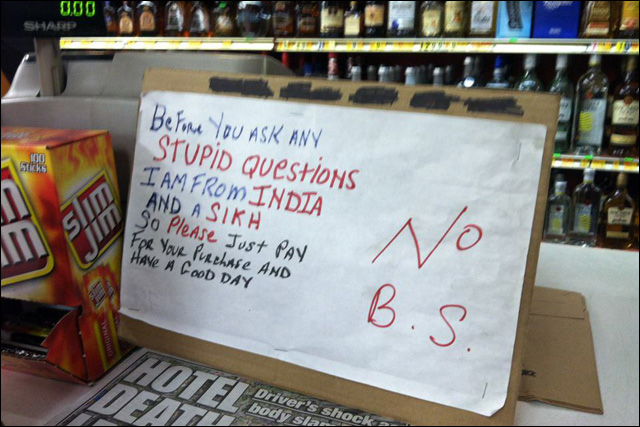 0.00
SHARP
Before You ASK ANY
STUPID QUESTIONS
I AM FROM INDIA
AND A SIKH
So Please Just PAY
For Your Purchase AND
HAVE A GOOD DAY
No
B.S.
100
Sticks
SLIM
JIM
HOTEL
DEATH
Driver's shock
body slam